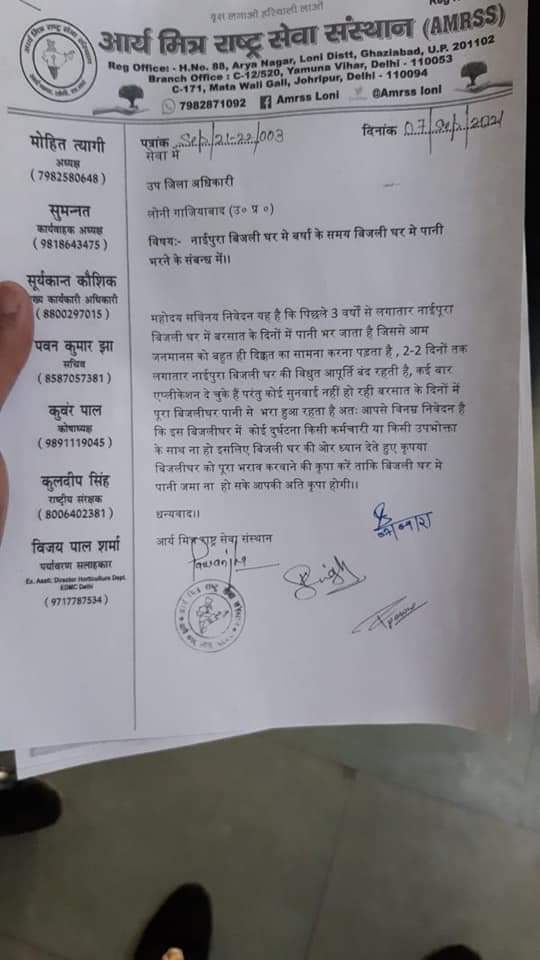 वृक्ष लगाओ हरियाली लाओ
आर्य मित्र राष्ट्र सेवा संस्थान (AMRSS)
Reg Office: - H.No. 88, Arya Nagar, Loni Distt, Ghaziabad, U.P. 201102
Branch Office : C-12/520, Yamuna Vihar, Delhi - 110053
C-171, Mata Wali Gali, Johripur, Delhi - 110094
7982871092 Amrss Loni @Amrss loni
मोहित त्यागी
अध्यक्ष
( 7982580648 )
सुमन्नत
कार्यवाहक अध्यक्ष
( 9818643475 )
सूर्यकान्त कौशिक
मुख्य कार्यकारी अधिकारी
( 8800297015 )
पवन कुमार झा
सचिव
( 8587057381 )
कुवंर पाल
कोषाध्यक्ष
( 9891119045 )
कुलदीप सिंह
राष्ट्रीय संरक्षक
( 8006402381 )
विजय पाल शर्मा
पर्यावरण सलाहकार
Ex. Asstt. Director Horticulture Dept.
EDMC Delhi
( 9717787534 )
पत्रांक Sep/21-22/003 दिनांक 07/Sep/2021
सेवा में
उप जिला अधिकारी
लोनी गाजियाबाद (उ० प्र ०)
विषय:- नाईपुरा बिजली घर मे बर्षा के समय बिजली घर मे पानी
भरने के संबन्ध में।।
महोदय सविनय निवेदन यह है कि पिछले 3 वर्षो से लगातार नाईपूरा
बिजली घर में बरसात के दिनों में पानी भर जाता है जिससे आम
जनमानस को बहुत ही दिक्कत का सामना करना पड़ता है , 2-2 दिनों तक
लगातार नाईपुरा बिजली घर की विधुत आपूर्ति बंद रहती है, कई बार
एप्लीकेशन दे चुके हैं परंतु कोई सुनवाई नहीं हो रही बरसात के दिनों में
पूरा बिजलीघर पानी से भरा हुआ रहता है अतः आपसे विनम्र निवेदन है
कि इस बिजलीघर में कोई दुर्घटना किसी कर्मचारी या किसी उपभोक्ता
के साथ ना हो इसलिए बिजली घर की ओर ध्यान देते हुए कृपया
बिजलीघर को पूरा भराव करवाने की कृपा करें ताकि बिजली घर मे
पानी जमा ना हो सके आपकी अति कृपा होगी।।
धन्यवाद।।
आर्य मित्र राष्ट्र सेवा संस्थान
Pawanjha
Singh